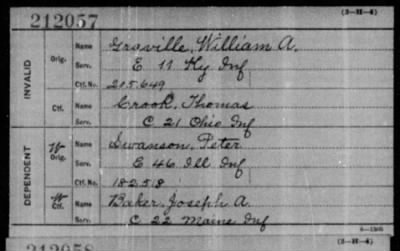 212057
(3-H-4)
INVALID
Orig.
Name Graville, William A.
Serv. E 11 Ky Inf
Ctf. No. 205.649
Ctf.
Name Crook, Thomas
Serv. C 21 Ohio Inf
DEPENDENT
W Orig.
Name Swanson, Peter
Serv. E 46 Ill Inf
Ctf. No. 182518
W Ctf.
Name Baker, Joseph A.
Serv. C 22 Maine Inf
(3-H-4)
212058